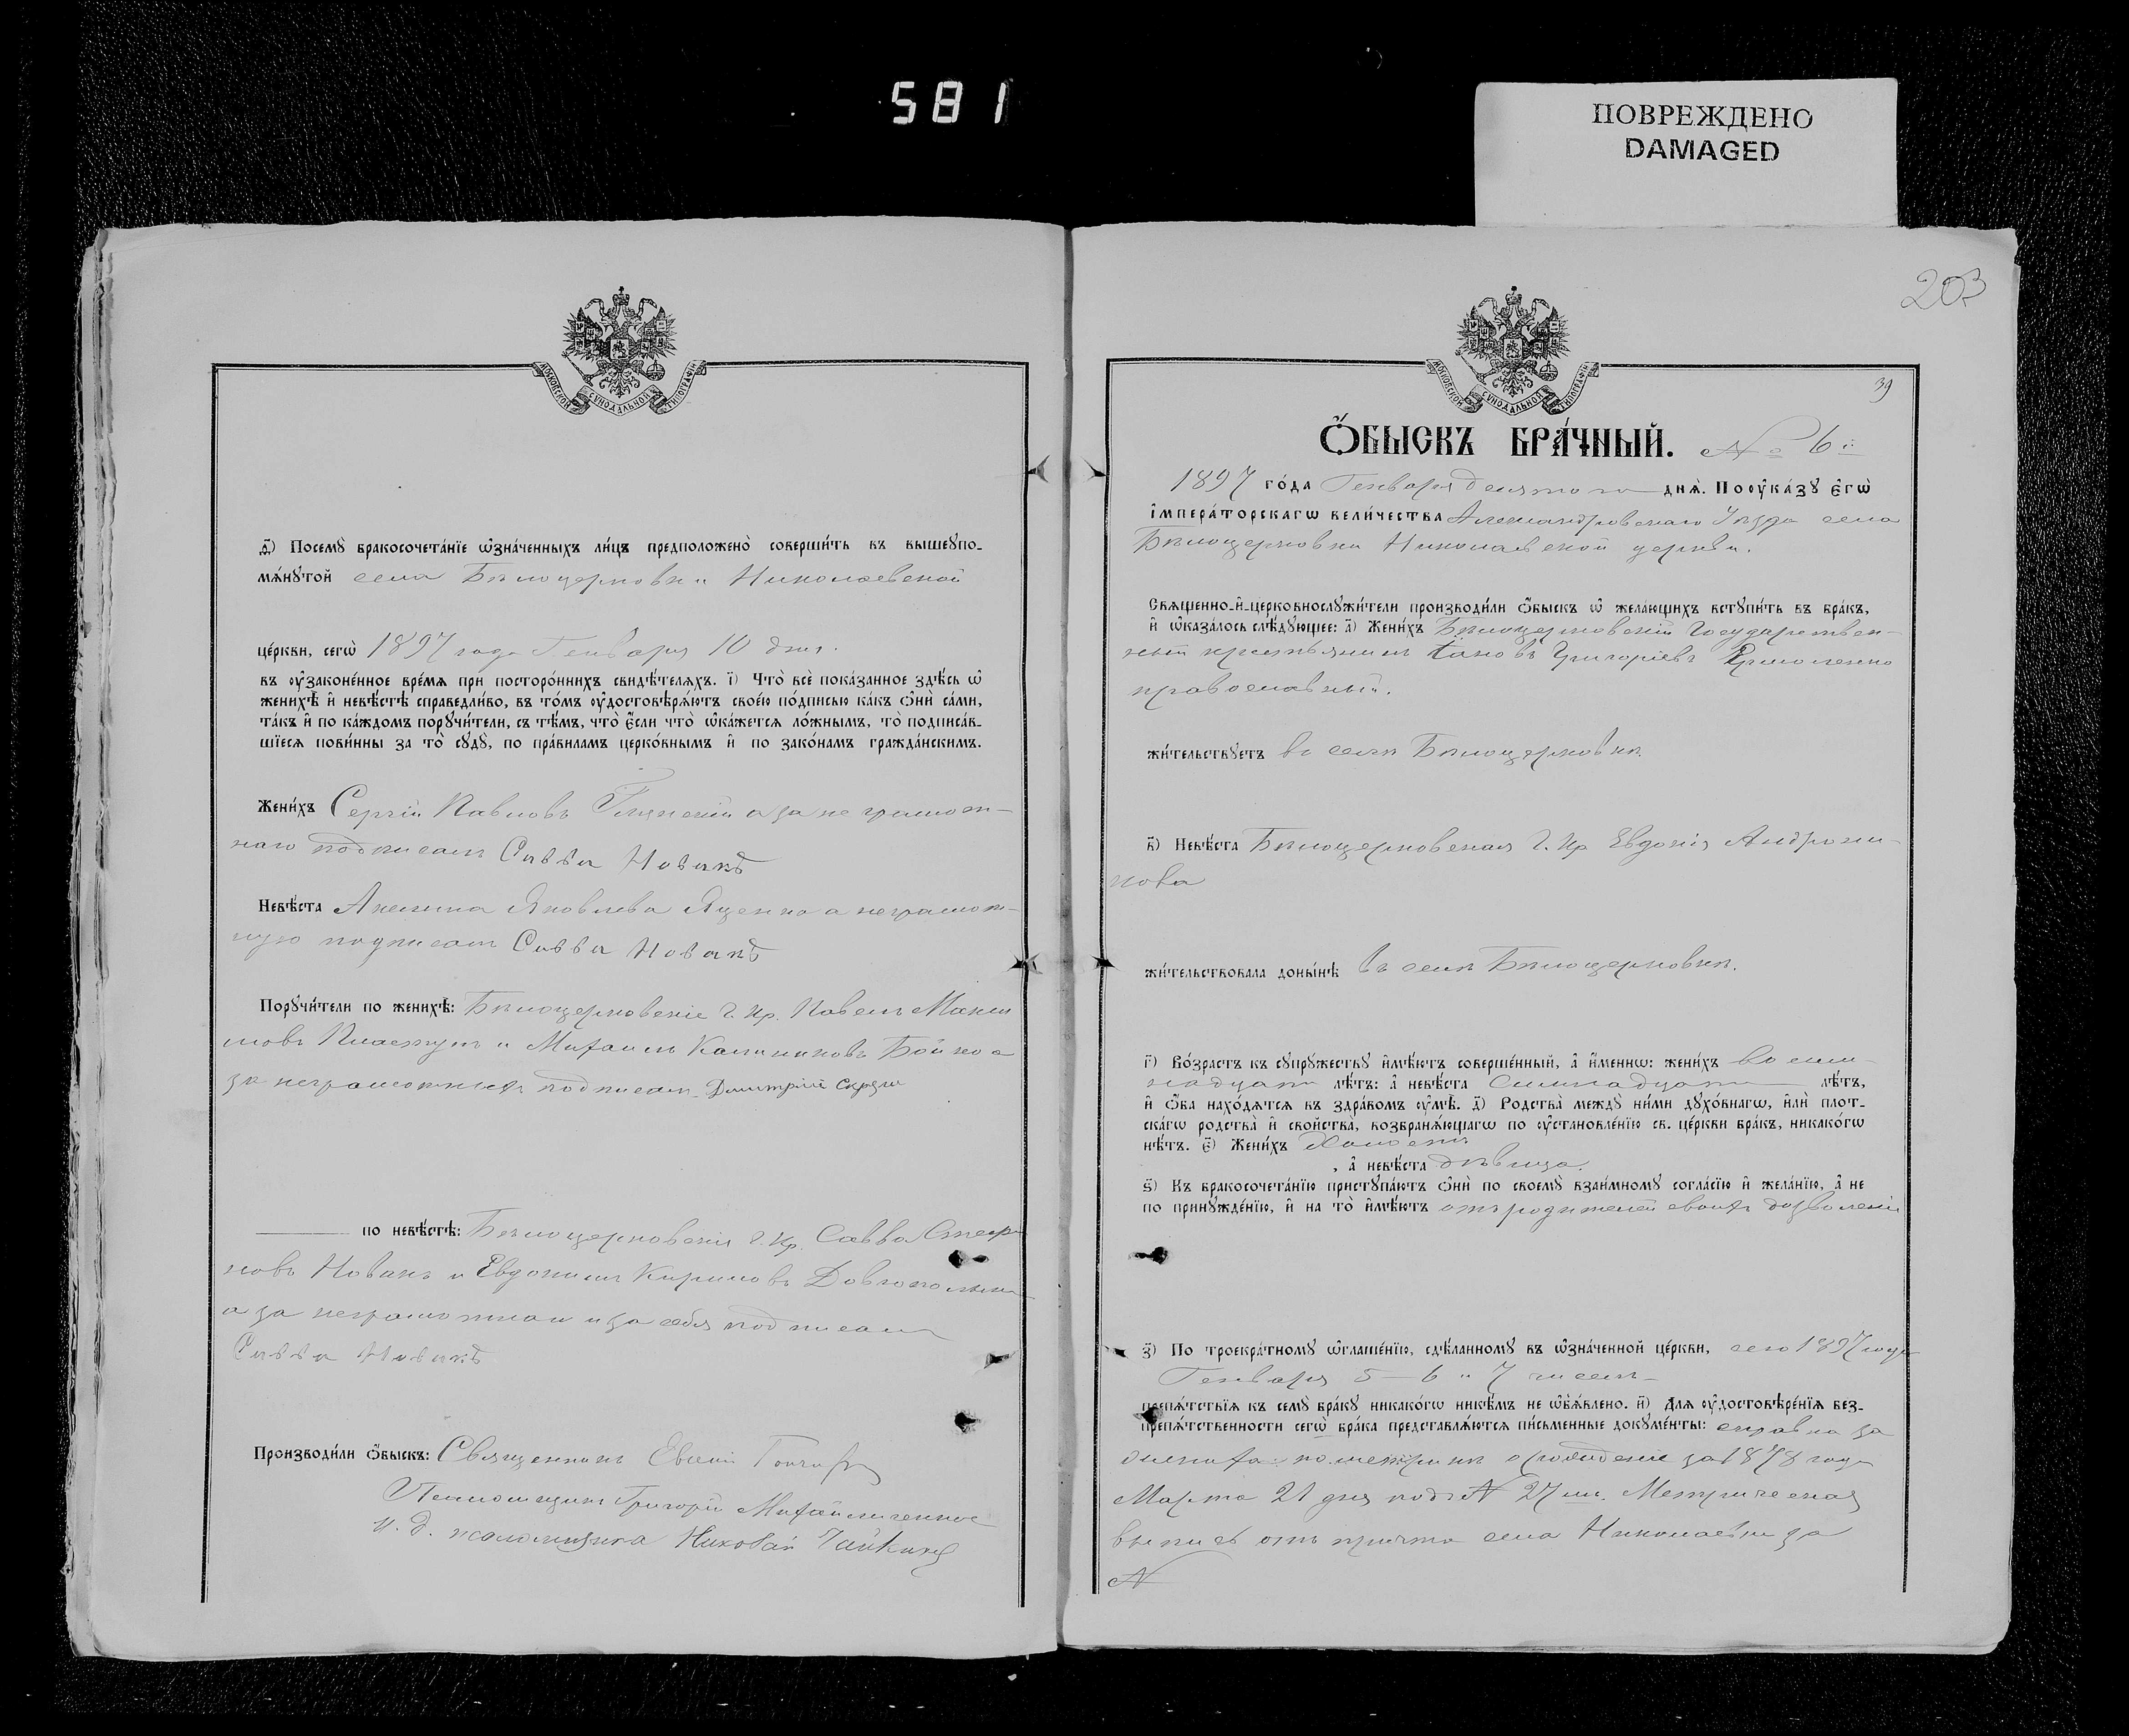 581
ПОВРЕЖДЕНО
DAMAGED
МОСКОВСКОЙ СѴНОДАЛЬНОЙ ТИПОГРАФІИ
д҃) Посемꙋ̀ бракосочета́нїе ѡ҆зна́ченныхъ ли́цъ предположено̀ соверши́ть въ вышеꙋпо-
мѧ́нꙋтой села Бѣлоцерковки Николаевской
це́ркви, сегѡ̀ 1897 года Генваря 10 дня.
въ ᲂу҆зако́ненное вре́мѧ при посторо́ннихъ свидѣ́телѧхъ. і҃) Что̀ всѐ пока́занное здѣ́сь ѡ҆
женихѣ̀ и҆ невѣ́стѣ справедли́во, въ то́мъ ᲂу҆достовѣрѧ́ютъ свое́ю по́дписью ка́къ ѻ҆нѝ са́ми,
та́къ и҆ по ка́ждомъ порꙋчи́тели, съ тѣ́мъ, что̀ є҆́сли что̀ ѡ҆ка́жетсѧ ло́жнымъ, то̀ подписа́в-
шїесѧ пови́нны за то̀ сꙋдꙋ̀, по пра́виламъ церко́внымъ и҆ по зако́намъ гражда́нскимъ.
Жени́хъ Сергій Павловъ а за не грамот-
наго подписалъ Савва Новакъ
Невѣ́ста Акилина Яковлева Яценко а неграмот-
ную подписалъ Савва Новакъ
Порꙋчи́тели по женихѣ̀: Бѣлоцерковскіе г. кр. Павелъ Макси
мовъ и Михаилъ Калиниковъ Бойко а
за неграмотныхъ подписалъ Дмитрій
по невѣ́стѣ: Бѣлоцерковскія г. кр. Савва Стефа
новъ Новакъ и Евдокимъ Кириловъ
а за неграмотнаго и за себя подписалъ
Савва Новакъ
Производи́ли ѻ҆́быскъ: Священникъ Евгеній
Псаломщикъ Григорій Михайличенко
и. д. псаломщика Николай
203
МОСКОВСКОЙ СѴНОДАЛЬНОЙ ТИПОГРАФІИ
39
Ѻ҆́быскъ бра́чный. № 6й
1897 го́да Генваря девятаго днѧ̀. По ᲂу҆ка́зꙋ є҆гѡ̀
і҆мпера́торскагѡ вели́чества Александровскаго Уѣзда села
Бѣлоцерковки Николаевской церкви.
Свѧще́нно-и҆-церковнослꙋжи́тели производи́ли ѻ҆́быскъ ѡ҆ жела́ющихъ встꙋпи́ть въ бра́къ,
и҆ ѡ҆каза́лось слѣ́дꙋющее: а҃) Жени́хъ Бѣлоцерковскій Государствен-
ный крестьянинъ Іаковъ Григоріевъ Ермоленко
православный.
жи́тельствꙋетъ въ селѣ Бѣлоцерковкѣ.
в҃) Невѣ́ста Бѣлоцерковская г. кр Евдокія Андрони-
кова
жи́тельствовала доны́нѣ въ селѣ Бѣлоцерковкѣ.
г҃) Во́зрастъ къ сꙋпрꙋ́жествꙋ и҆мѣ́ютъ соверше́нный, а҆̀ и҆́меннѡ: жени́хъ восем-
надцати лѣ́тъ: а҆̀ невѣ́ста семнадцати лѣ́тъ,
и҆ ѻ҆́ба нахо́дѧтсѧ въ здра́вомъ ᲂу҆мѣ̀. д҃) Родства̀ междꙋ̀ ни́ми дꙋхо́внагѡ, и҆лѝ плот-
ска́гѡ родства̀ и҆ сво́йства, возбранѧ́ющагѡ по ᲂу҆становле́нїю св. це́ркви бра́къ, никако́гѡ
нѣ́тъ. є҃) Жени́хъ Холостъ
, а҆̀ невѣ́ста дѣвица.
ѕ҃) Къ бракосочета́нїю пристꙋпа́ютъ ѻ҆нѝ по своемꙋ̀ взаи́мномꙋ согла́сїю и҆ жела́нїю, а҆̀ не
по принꙋжде́нїю, и҆ на то̀ и҆мѣ́ютъ отъ родителей своихъ дозволеніе
з҃) По троекра́тномꙋ ѡ҆глаше́нїю, сдѣ́ланномꙋ въ ѡ҆зна́ченной це́ркви, сего 1897 года
Генваря 5-6 и 7 чиселъ
препѧ́тствїѧ къ семꙋ̀ бра́кꙋ никако́гѡ никѣ́мъ не ѡ҆б̾ѧ́влено. и҃) Для ᲂу҆достовѣре́нїѧ без-
препѧ́тственности сегѡ̀ бра́ка представлѧ́ютсѧ пи́сьменные докꙋме́нты: справка за
жениха по метрикѣ о рожденіи за 1878 года
Марта 21 дня подъ № 27 м. Метрическая
выпись отъ причта села Николаевки за
№